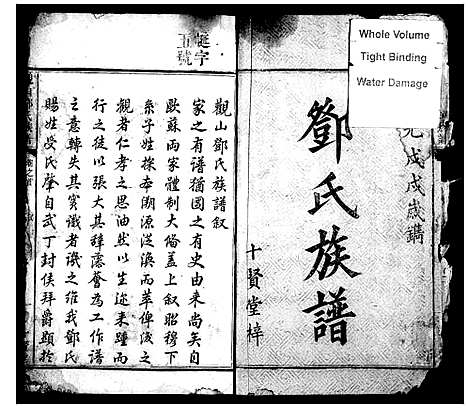 Whole Volume
Tight Binding
Water Damage
光戊戌歲鐫
鄧氏族譜
十賢堂梓
字
五號
觀山鄧氏族譜叙
家之有譜猶國之有史由来尚矣自
歐蘇兩家體制大偹蓋上叙昭穆下
条子姓探本溯源泛渙而萃俾泼之
観者仁孝之思油然以生迩来踵而
行之徒以張大其辞譸為工作譜
之意轉失其實識者譏之維我鄧氏
賜姓受氏肇自武丁封侯拜爵顯於